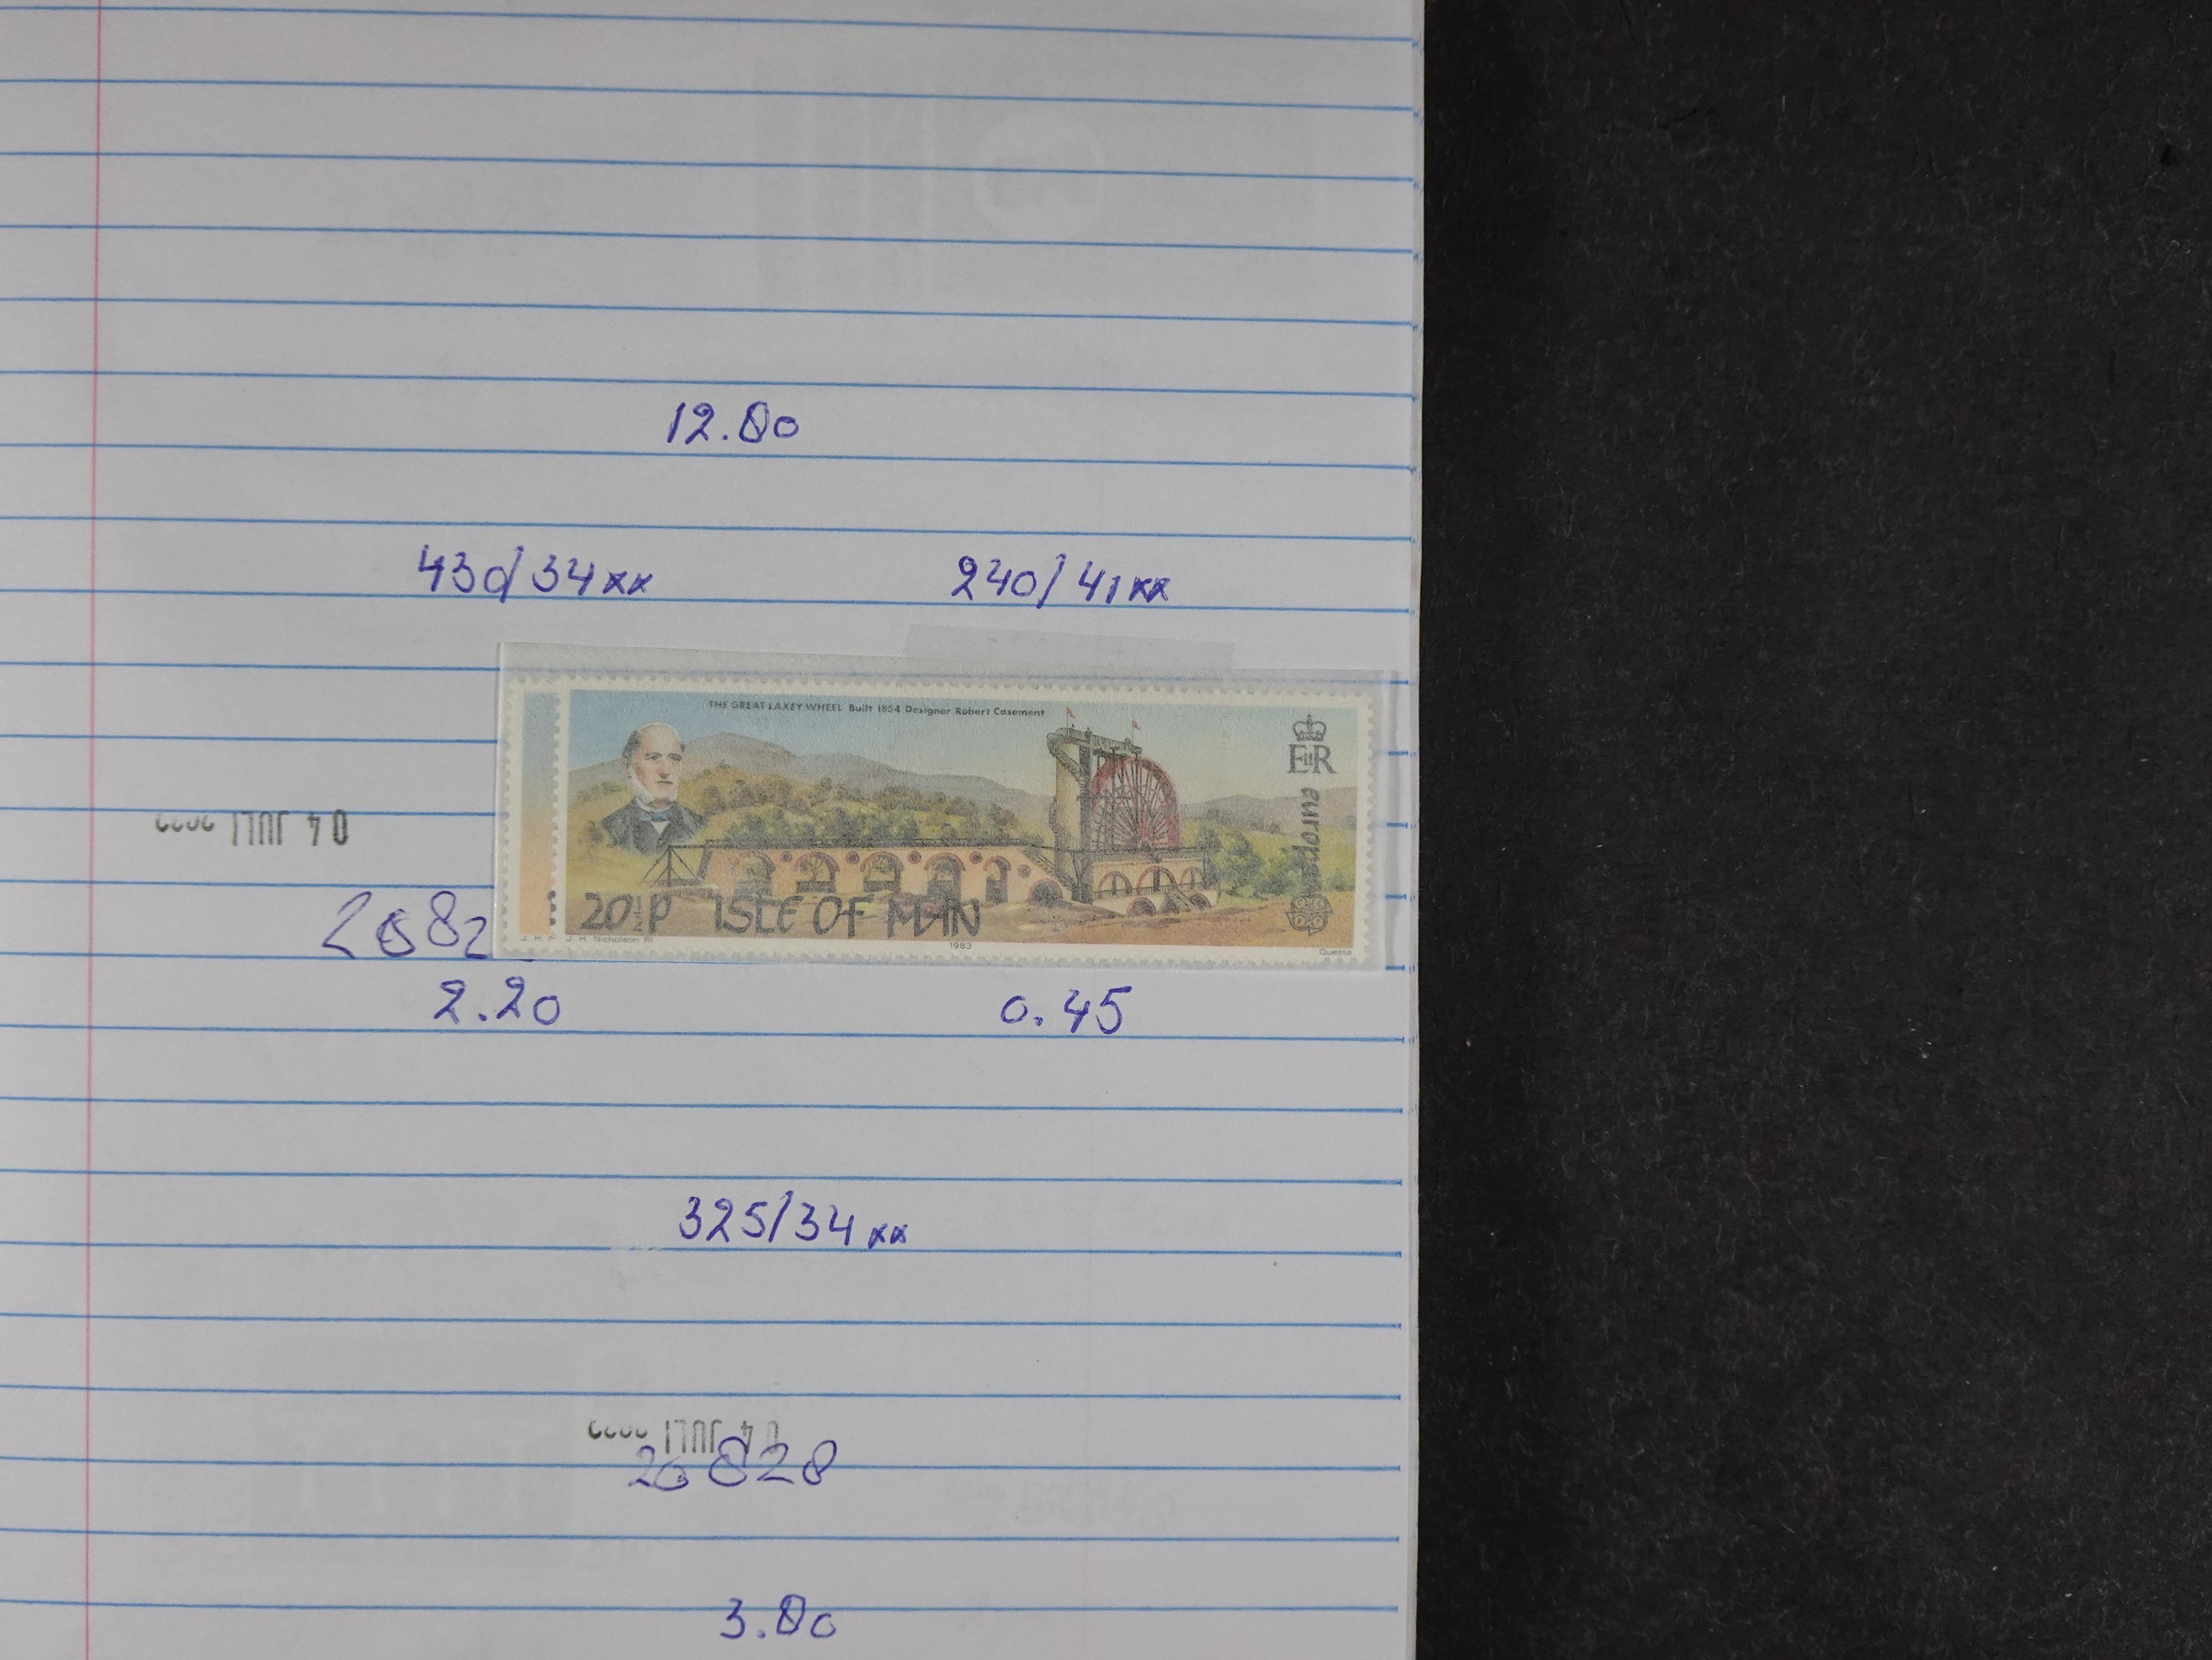 12.80
430/34xx 240/41xx
THE GREAT LAXEY WHEEL Built 1854 Designer Robert Casement
EIIR
europa
20½P ISLE OF MAN
J. H. Nicholson RI 1983 Questa
04 JULI
2682
2.20 0.45
325/34xx
04 JULI
26828
3.80